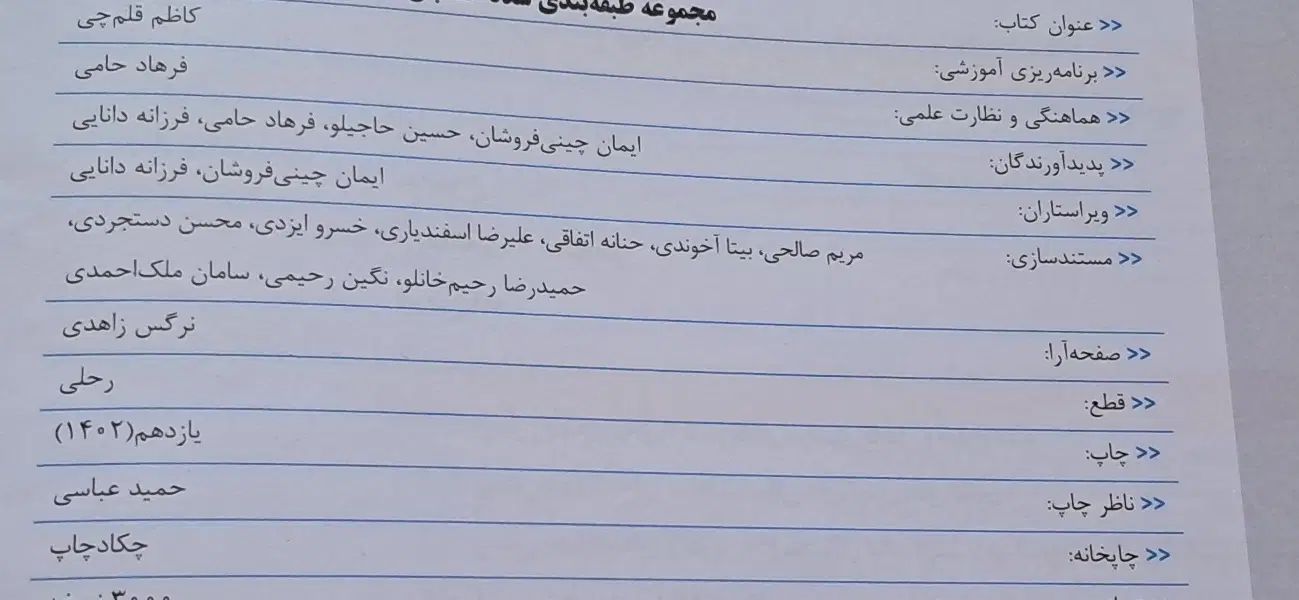 << عنوان کتاب: مجموعه طبقه‌بندی
<< برنامه‌ریزی آموزشی: کاظم قلم‌چی
<< هماهنگی و نظارت علمی: فرهاد حامی
<< پدیدآورندگان: ایمان چینی‌فروشان، حسین حاجیلو، فرهاد حامی، فرزانه دانایی
<< ویراستاران: ایمان چینی‌فروشان، فرزانه دانایی
<< مستندسازی: مریم صالحی، بیتا آخوندی، حنانه اتفاقی، علیرضا اسفندیاری، خسرو ایزدی، محسن دستجردی،
حمیدرضا رحیم‌خانلو، نگین رحیمی، سامان ملک‌احمدی
<< صفحه‌آرا: نرگس زاهدی
<< قطع: رحلی
<< چاپ: یازدهم(۱۴۰۲)
<< ناظر چاپ: حمید عباسی
<< چاپخانه: چکادچاپ